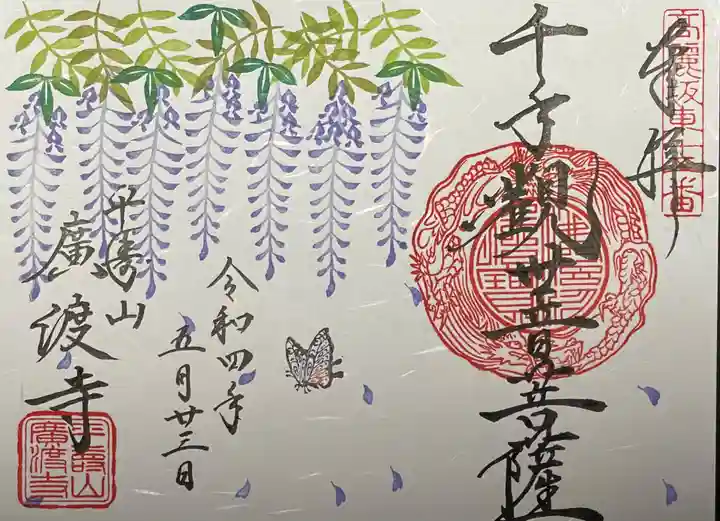 高麗坂東
番
奉拝
千手觀世音菩薩
令和四年
五月廿三日
平壽山
廣渡寺
平壽山
廣渡寺